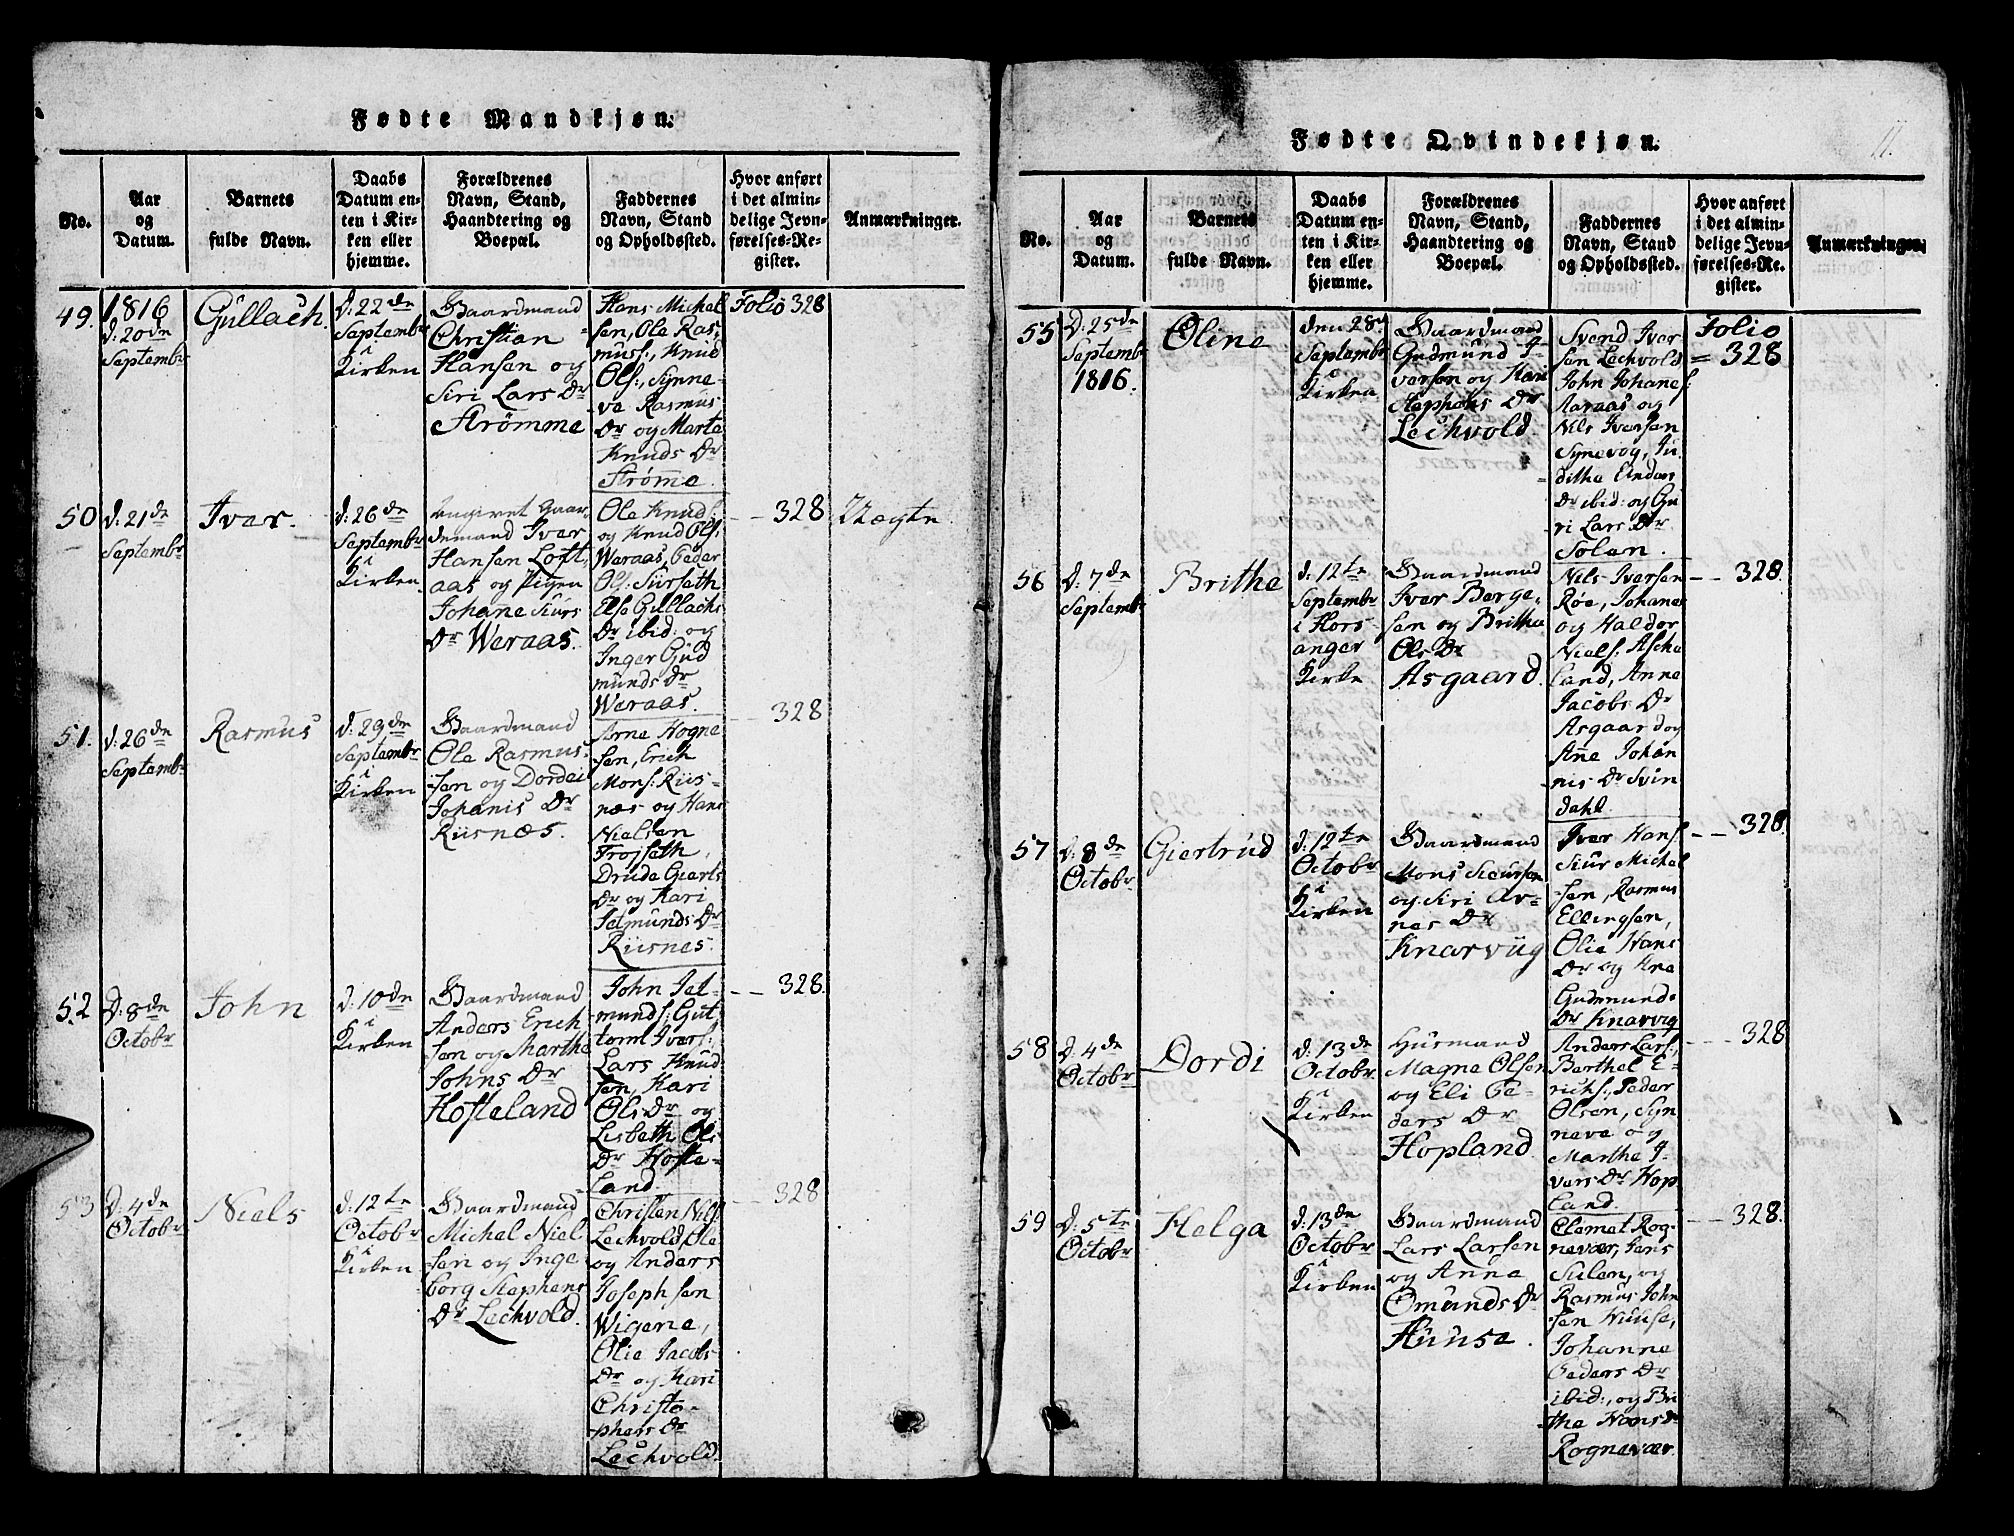 Fødte Mandkjøn.
No.
Aar
og
Datum.
Barnets
fulde Navn.
Daabs
Datum en-
ten i Kir-
ken eller
hjemme.
Forældrenes
Navn, Stand,
Haandtering og
Boepæl.
Faddernes
Navn, Stand
og Opholdssted.
Hvor anført
i det almin-
delige Jevn-
førelses-Re-
gister.
Anmærkninger.
49.
1816
d: 20de
Septembr
Güllach.
d: 22de
Septembr
i
Kirken
Gaardmand
Christian
Hansen og
Siri Lars Dr
Strømme
Hans Michel
sen, Ole Ras,
muss:, Knud
Ols:, Synne-
ve Rasmus
Dr og Marte
Knuds Dr
Strøme.
Folio 328
50
d: 21de
Septembr
Iver.
d: 26de
Septembr
i
Kirken
ungivet Gaar,
demand Iver
Hansen Loft,
aas og Pigen
Johanne Siurs
Dr Weraas.
Ole Knuds:
og Knud Ols,
Weraas, Peder
Ols: Surseth
Else Gullachs
Dr ibid: og
Inger Gud
munds Dr
Weraas.
- - 328
Uægte.
51.
d: 26de
Septembr
Rasmus
d: 29de
Septembr
i
Kirken
Gaardmand
Ole Rasmus,
sen og Dordei
Johanis Dr
Riisnæs.
Arne Hogne
sen, Erich
Mons: Riis-
næs og Hans
Nielsen
Trojseth,
Drude Gierts
Dr og Kari
Jetmunds Dr
Riisnes.
- - 328
52
d: 8de
Octobr
John
d: 10de
i
Kirken
Gaardmand
Anders Erich
sen og Marthe
Johns Dr
Hosteland
John Jet-
munds: Gut
torm Ivers:,
Lars Knud
sen, Kari
Ols Dr og
Lisbeth Ols
Dr Hoste-
land.
- - 328.
53
d: 4de
Octobr
Niels
d: 12te
Octobr
i
Kirken
Gaardmand
Michel Niel
sen og Inge
borg Stephens
Dr Lechvold.
Christen Nils:
Lechvold, Ole
og Anders
Josephsen
Wigene,
Olie Jacobs
Dr og Kari
Christo-
phers Dr
Lechvold.
- - 328
11.
Fødte Qvindekjøn.
No.
Aar
og
Datum.
Barnets
fulde Navn.
Daabs
Datum en-
ten i Kir-
ken eller
hjemme.
Forældrenes
Navn, Stand,
Haandtering og
Boepæl.
Faddernes
Navn, Stand
og Opholdssted.
Hvor anført
i det almin-
delige Jevn-
førelses-Re-
gister.
Anmærkninger.
55
D: 25de
Septembr
1816.
Oline
den 28d
Septembr
i
Kirken
Gaardmand
Gudmund I-
versen og Kari
Stephens Dr
Lechvold
Svend Iver
sen Lechvold
John Johanes:
Aaraas og
Nils Iversen
Synevog, Ju
ditha Endres
Dr ibid: og Gu
ri Lars Dr
Solen.
Folio
= 328
56
D: 7de
Septembr
Brithe
d: 12te
Septembr
i Hors
anger
Kirke
Gaardmand
Iver Berge,
sen og Britha
Ols Dr
Asgaard.
Nils Iversen
Røe, Johanes
og Haldor
Niels: Asche
land, Anna
Jacobs Dr
Asgaard og
Ane Johan
nis Dr Svin
dahl.
- - 328.
57
d: 8de
Octobr
Giertrud
d: 12te
Octobr
i
Kirken
Gaardmand
Mons Siursen
og Siri Ar-
nes Dr
Knarvüg
Iver Hans:
Siur Michel
sen, Rasmus
Ellingsen,
Olie Hans
Dr og Ane
Gudmunds
Dr Knarvig
- - 328.
58
d: 4de
Octobr
Dordi
d: 13de
Octobr
i
Kirken
Husmand
Magne Olsen
og Eli Pe-
ders Dr
Hopland
Anders Lars:,
Berthel E-
richs:, Peder
Olsen, Syn
neve og
Marthe I-
vers Dr Hop
land.
- - 328
59
d: 5te
Octobr
Helga
d: 13de
Octobr
i
Kirken
Gaardmand
Lars Larsen
og Anna
Omunds Dr
Huuse.
Clemet Rog-
nevær, Jens
Sulen, og
Rasmus John
sen Huuse,
Johanne
Peders Dr
ibid:, og Bri
the Hans Dr
Rognevær.
- - 328.